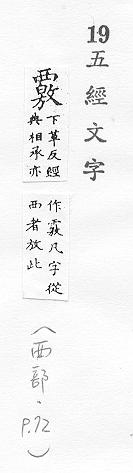 19 五經文字
覈
下革反經
典相承亦
作凡字從
西者放此
(西部·P.72)